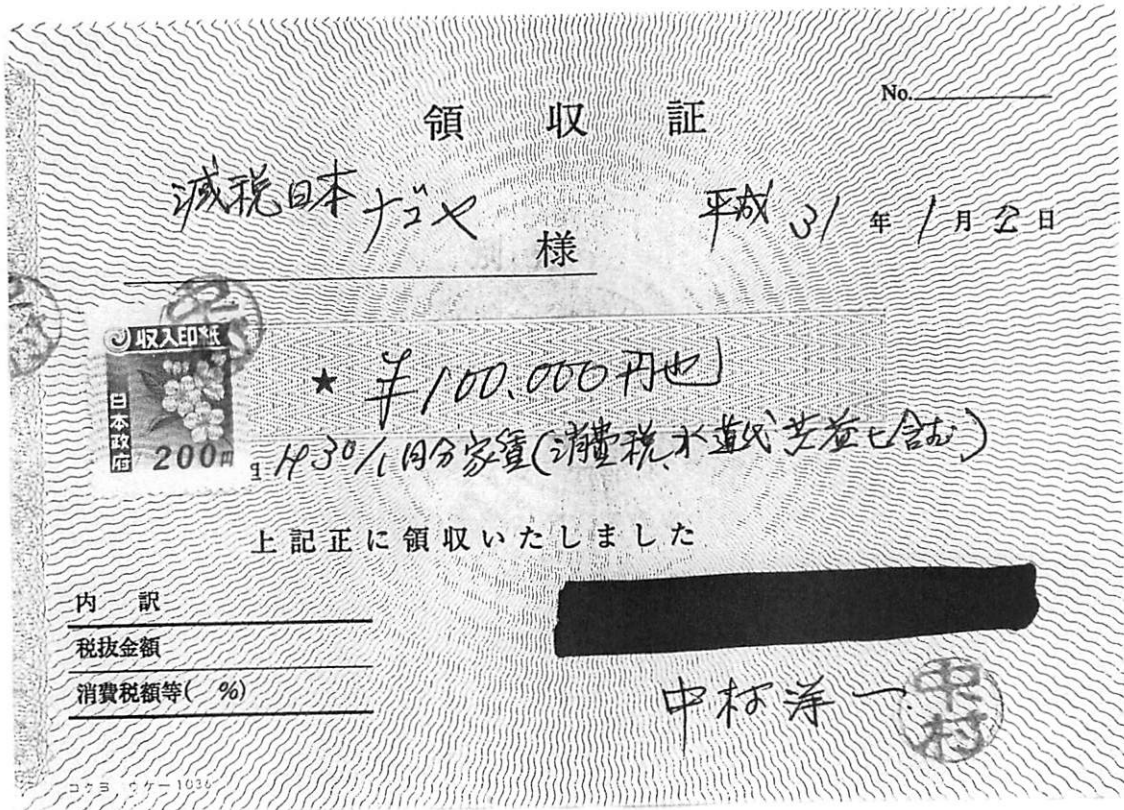 No.
領収証
減税日本ナゴヤ 様
平成31年1月2日
収入印紙
日本政府
200円
★ ¥100.000円也
H30/1月分家賃(消費税、水道代共益も含む)
上記正に領収いたしました
内訳
税抜金額
消費税額等( %)
中村洋一
中村
コクヨ ウケー1036